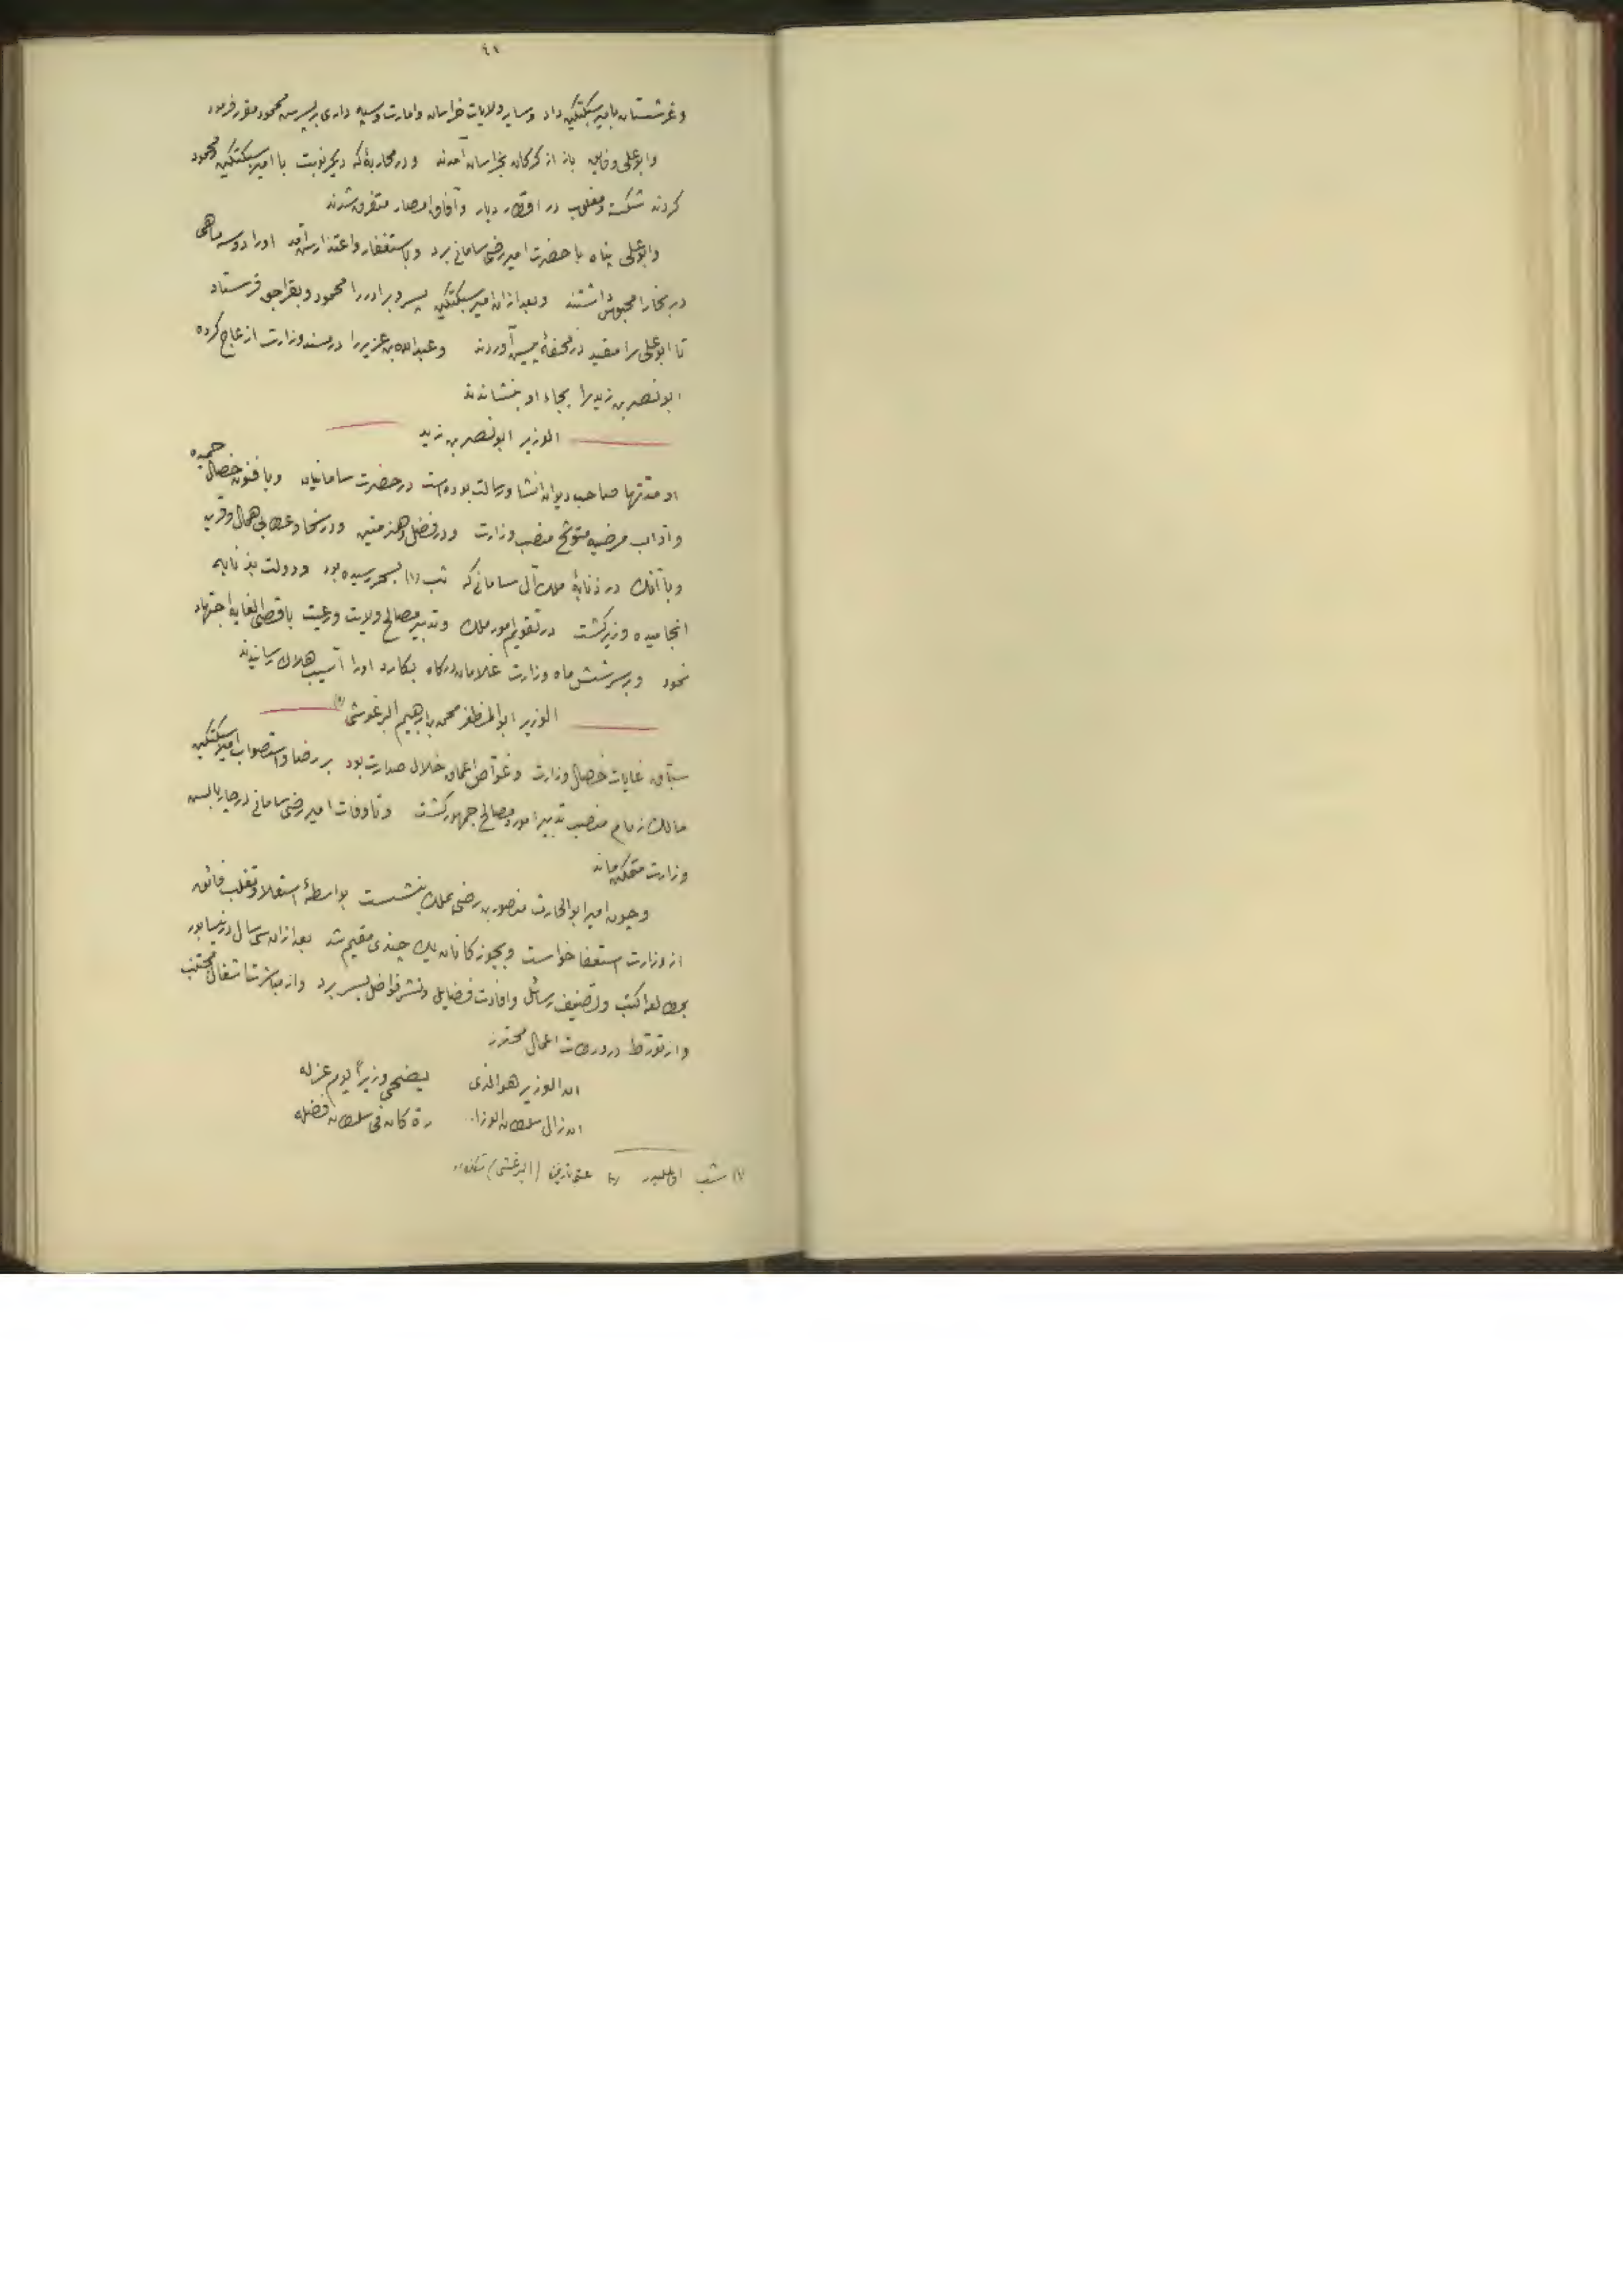 وغرشستان بامیر سبکتکین داد وسایر ولایات خراسان وامارت وسپه داری بر پسرش محمود مقرر فرمود
وابوعلی وفایق باز از کرکان بخراسان آمدند ودر محاربۀ که دیکر نوبت با امیر سبکتکین ومحمود
کردند شکسته ومغلوب در اقطار دیار وآفاق امصار متفرق شدند
وابوعلی پناه با حضرت امیر رضی سامانی برد وباستغفار واعتذار پیش آمد اورا دوسه ماهی
در بخارا محبوس داشتند وبعد ازان امیر سبکتکین پسر وبرادر را محمود وبغراجق فرستاد
تا ابوعلی را مقید در محفۀ پیش آوردند وعبدالله بن عزیر را در مسند وزارت ازعاج کرده
ابونصر بن زید را بجاء او بنشاندند
الوزیر ابونصر بن زید
او مدتها صاحب دیوان انشا ورسالت بوده است در حضرت سامانیان وبا فنون خصال حمیده
وآداب مرضیه متوشح منصب وزارت ودر فضل وهنر متین ودر سخا وعطا بی همال وقرین
وبا آنک در ذنابۀ ملک آل سامانی که تب (۱) بسحر رسیده بود ودولت بذنابه
انجامیده وزیر کشت در تقویم امور ملک وتدبیر مصالح ولایت ورعیت باقصی الغایه اجتهاد
نمود وبر سر شش ماه وزارت غلامان درکاه بکارد اورا آسیب هلاک رسانیدند
الوزیر ابوالمظفر محمد بن ابرهیم البرغوشی (۲)
سبّاق غایات خصال وزارت وغوّاص اعماق خلال صدارت بود بر رضا واستصواب امیر سبکتکین
مالک زمام منصب تدبیر امور ومصالح جمهور کشت وتا وفات امیر رضی سامانی در چهار بالش
وزارت متمکن ماند
وچون امیر ابوالحارث منصور بن رضی بملک بنشست بواسطۀ استعلا وتغلب فائق
از وزارت استعفا خواست وبجوزکانان یک چندی مقیم شد بعد ازان سی سال در نیسابور
بمطالعه کتب وتصنیف رسائل وافادت فضایل ونشر فواضل بسر برد واز مباشرت اشغال مجتنب
واز تورّط در ورطات اعمال محترز
ان الوزیر هو الذی یضحی وزیراً یوم عزله
ان زال سلطان الوزا رة کان فی سلطان فضله
(۱) شب (۲) البرغشی